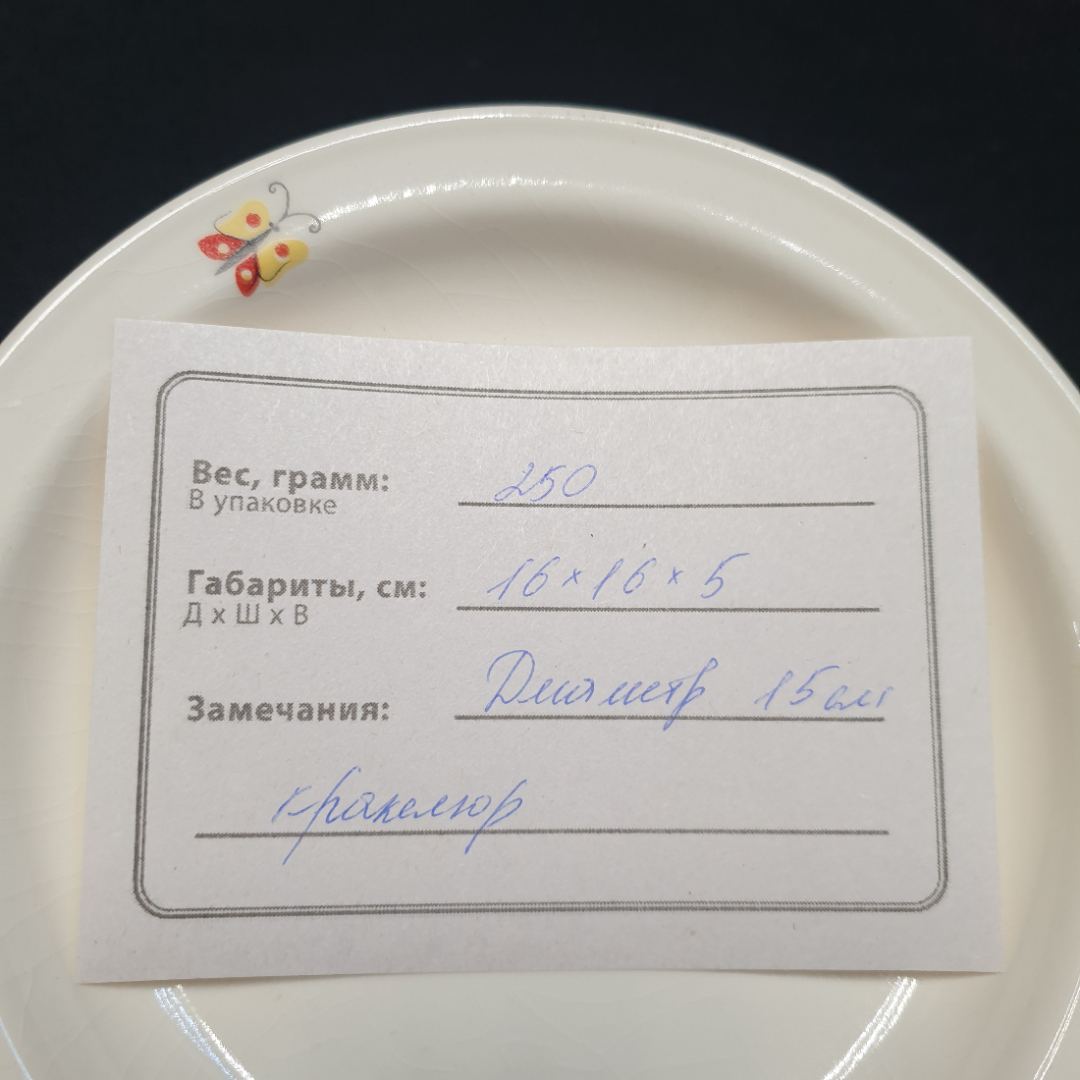 Вес, грамм: 250
В упаковке
Габариты, см: 16×16×5
Д х Ш х В
Замечания: Диаметр 15см
кракелюр